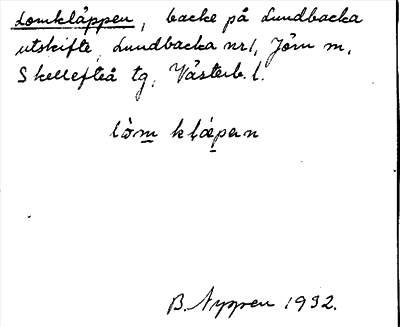 Lomkläppen, backe på Lundbacka
utskifte, Lundbacka nr 1, Jörn m,
Skellefteå tg, Västerb. l.
lòm kḷæpən
B. Nyppen 1932.